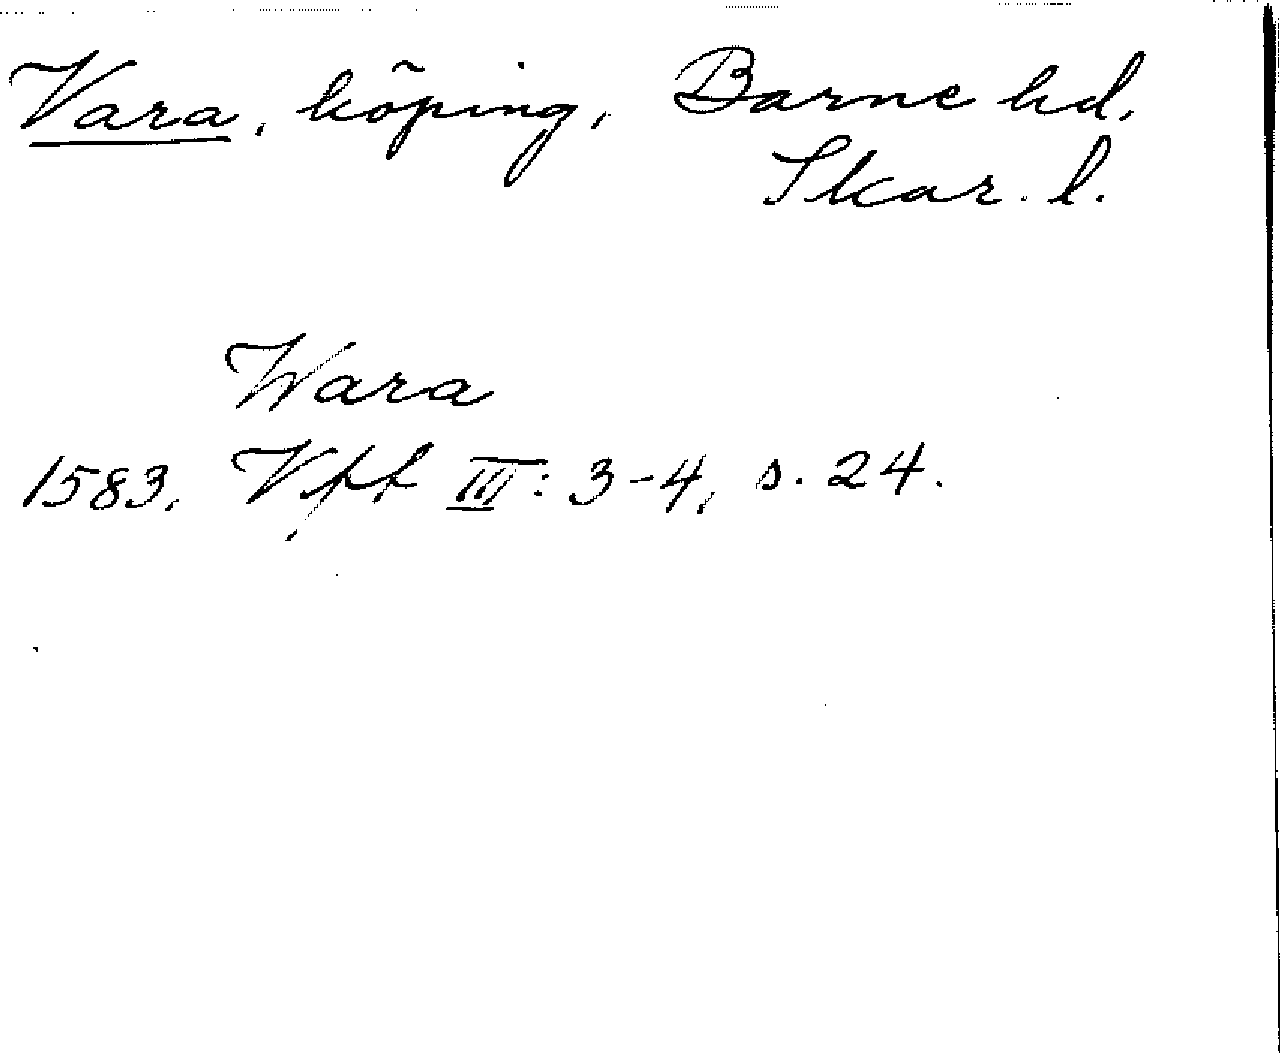 Vara, köping, Barne hd,
Skar. l.
Wara
1583. Vft III: 3-4, s. 24.